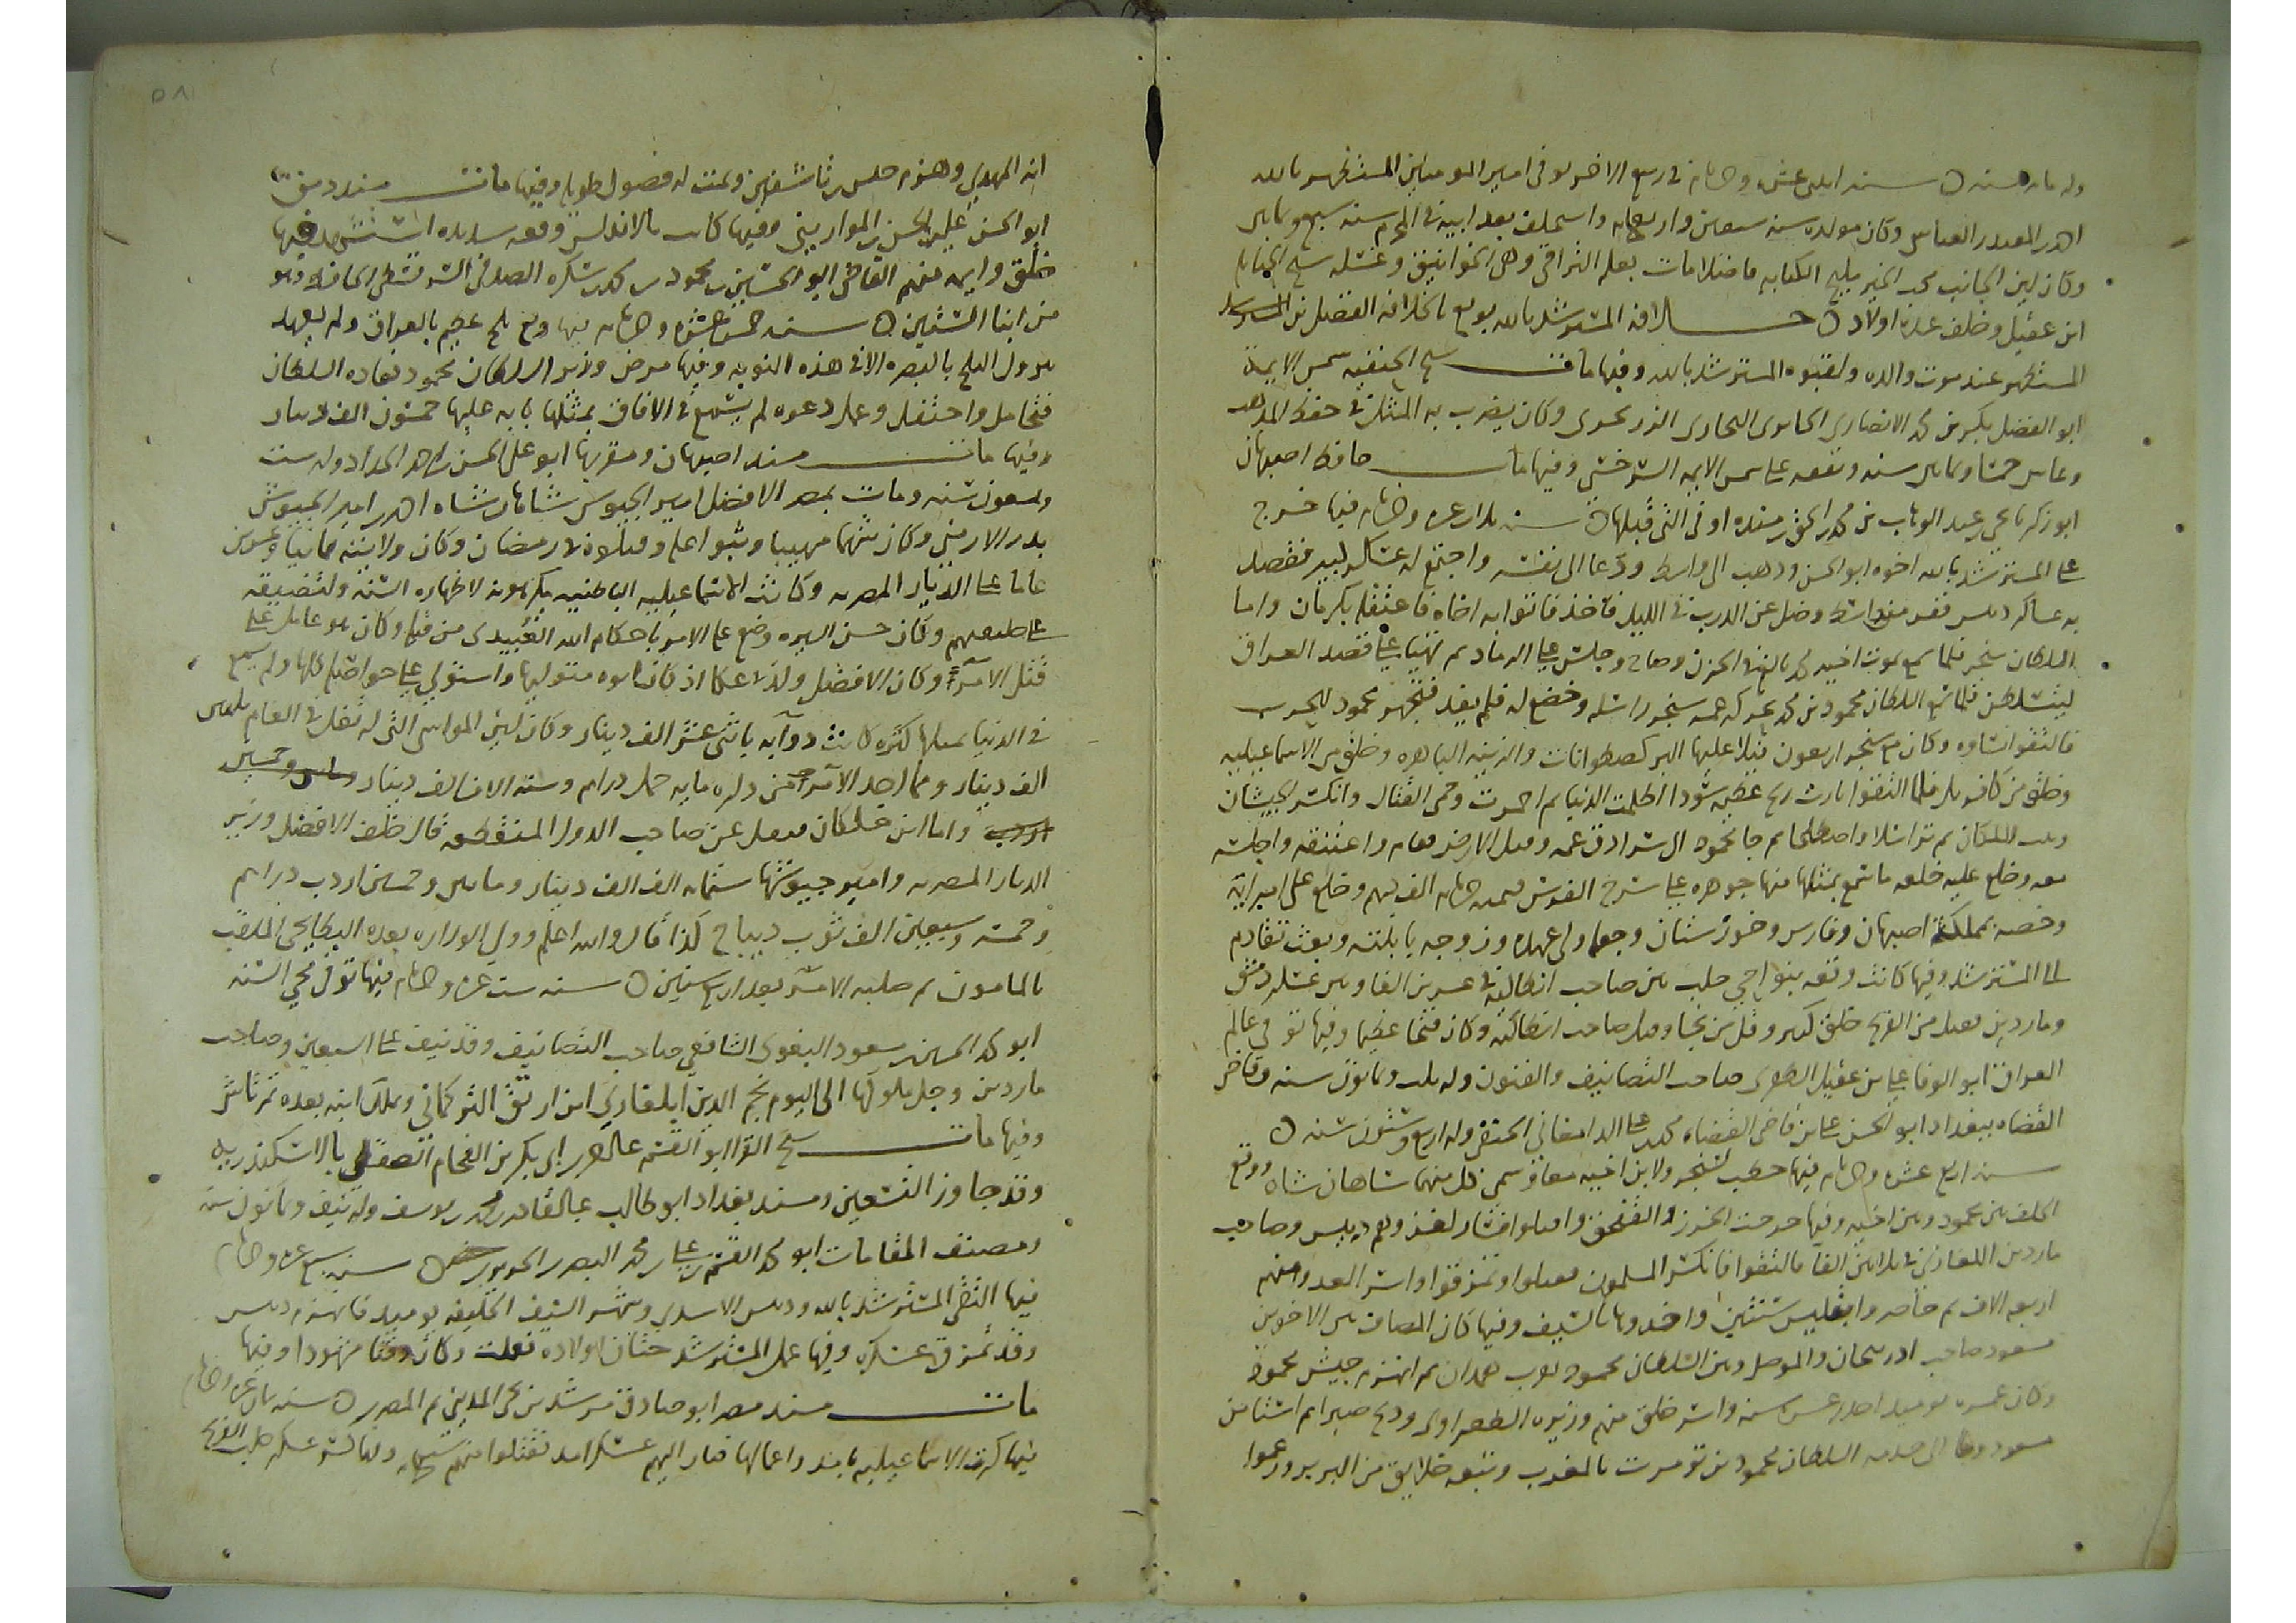 وله مايه سنه ه سنه اثنتى عشره وخمسمايه في ربيع الاخر توفي امير المومنين المستظهر بالله
احمد بن المقتدر العباسي وكان مولده سنه سبعين واربعمايه واستخلف بعد ابيه في المحرم سنه سبع وثمانين
وكان لين الجانب محب الخير مليح الكتابه فاضلا مات بعله التراقي وهي الخوانيق وغسله شيخ الحنابله
ابن عقيل وخلف عدة اولاد ه خلافه المسترشد بالله بويع بالخلافه الفضل بن
المستظهر عند موت والده ولقبوه المسترشد بالله وفيها مات شيخ الحنفيه شمس الايمة
ابو الفضل بكر بن محمد الانصاري الجابري البخاري الزرنجري وكان يضرب به المثل في حفظ المذهب
وعاش خمسا وثمانين سنه وتفقه على شمس الايمه السرخسي وفيها مات حافظ اصبهان
ابو زكريا يحيى بن عبد الوهاب بن محمد بن اسحق بن منده او في التي قبلها ه سنه ثلاث عشره وخمسمايه فيها خرج
على المسترشد بالله اخوه ابو الحسن وذهب الى واسط ودعا الى نفسه واجتمع له عسكر كبير فقصد
به عساكر دبيس ففر من واسط وضل عن الدرب في الليل فاخذ فاتوا به اخاه فاعتقله بكرمان واما
السلطان سنجر فلما سمع بموت اخيه محمد بالغ في الحزن وصاح وجلس على الرماد ثم تهيا على قصد العراق
ليتسلطن فلما سمع السلطان محمود بن محمد بحركه عمه سنجر راسله وخضع له فلم يفد فتجهز محمود للحرب
فالتقوا بساوه وكان مع سنجر اربعون فيلا عليها البركصطوانات والزينه الباهره وخلق من الاسماعيليه
وخلق من كفار فلما التقوا ثارت ريح عظيمه سودا اظلمت الدنيا ثم احمرت وحمي القتال وانكسر الجيشان
وثبت الملكان ثم تراسلا واصطلحا ثم جا محمود الى سرادق عمه وقبل الارض فقام واعتنقه واجلسه
معه وخلع عليه خلعه ما سمع بمثلها منها جوهره على سرج الفرس قيمته خمسمايه الف درهم وخلع على امرايه
وخصه بمملكة اصبهان وفارس وخوزستان وجعله ولي عهده وزوجه بابنته وبعث تقادم
الى المسترشد وفيها كانت وقعه بنواحي حلب بين صاحب انطاكيه في عشرين الفا وبين عسكر دمشق
وماردين فقتل من الفرنج خلق كبير وقل من نجا وقتل صاحب انطاكيه وكان فتحا عظيما وفيها توفي عالم
العراق ابو الوفا علي بن عقيل الظفري صاحب التصانيف والفنون وله ثلاث وثمانون سنه وقاضي
القضاه ببغداد ابو الحسن علي بن قاضي القضاه محمد بن علي الدامغاني الحنفي وله اربع وستون سنه ه
سنه اربع عشره وخمسمايه فيها خطب لسنجر ولابن اخيه معا وسمي كل منهما شاهان شاه ووقع
الخلف بين محمود وبين اخيه وفيها خرجت الخزر والقفجق واقبلوا فسار لغزوهم دبيس وصاحب
ماردين ايلغازي في ثلاثين الفا فالتقوا فانكسر المسلمون فقتلوا وتمزقوا واسر العدو منهم
اربعه الاف ثم حاصروا تفليس سنتين واخذوها بالسيف وفيها كان المصاف بين الاخوين
مسعود صاحب اذربيجان والموصل وبين السلطان محمود بقرب همدان ثم انهزم جيش محمود
وكان عمره يوميذ احدى عشره سنه واسر خلق منهم وزيره الطغرائي وذبح صبرا ثم استامن
مسعود الى خدمه السلطان محمود بن تومرت بالمغرب وتبعه خلايق من البربر وزعموا
٥٨
انه المهدي وهزم جيش تاشفين وتمت له فصول طويله وفيها مات مسند دمشق
ابو الحسن علي بن الحسن بن الموازيني وفيها كانت بالاندلس وقعه شديده استشهد فيها
خلق وايمه منهم القاضي ابو الحسين بن محمود بن محمد بن سكره الصدفي السرقسطي الحافظ وهو
من ابنا الستين ه سنه خمس عشره وخمسمايه فيها وقع ثلج عظيم بالعراق ولم يعهد
نزول الثلج بالبصره الا في هذه النوبه وفيها مرض وزير السلطان محمود فعاده السلطان
فتحامل واحتفل وعمل دعوه لم يسمع في الافاق بمثلها نابه عليها خمسون الف دينار
وفيها مات مسند اصبهان ومقريها ابو علي الحسن بن احمد الحداد وله ست
وتسعون سنه ومات بمصر الافضل امير الجيوش شاهان شاه احمد بن امير الجيوش
بدر الارمني وكان شهما مهيبا وثبوا عليه وقتلوه في رمضان وكان ولايته ثمانيا وعشرين
عاما على الديار المصريه وكانت الاسماعيليه الباطنيه يكرهونه لاظهاره السنه ولتضييقه
على خليفتهم وكان حسن السيره وضع على الامر باحكام الله العبيدي من قتله وكان هو عامل على
قتل الامر وكان الافضل ولد بعكا اذ كان ابوه متوليها واستولى على حواصله كلها ولم يسمع
في الدنيا بمثلها كثره كانت دوآيه باثنى عشر الف دينار وكان لبن المواشي التي له تغل في العام
الف دينار ومما اخذ الامر من داره مايه حمل دراهم وسته الاف الف دينار
واما ابن خلكان فنقل عن صاحب الدول المنقطعه قال خلف الافضل وزير
الديار المصريه وامير جيوشها ستمايه الف الف دينار ومايتين وخمسين اردب دراهم
وخمسه وسبعين الف ثوب ديباج كذا قال والله اعلم وولي الوزاره بعده البطايحي الملقب
بالمامون ثم صلبه الامر بعد اربع سنين ه سنه ست عشره وخمسمايه فيها توفي محي السنه
ابو محمد الحسين بن مسعود البغوي الشافعي صاحب التصانيف وقد نيف على السبعين وصاحب
ماردين وجد ملوكها الى اليوم نجم الدين ايلغازي ابن ارتق التركماني وملك ابنه بعده تمرتاش
وفيها مات شيخ القرا ابو القسم عبد الرحمن بن ابي بكر بن الفحام الصقلي بالاسكندريه
وقد جاوز التسعين ومسند بغداد ابو طالب عبد القادر بن محمد بن يوسف وله نيف وثمانون سنه
ومصنف المقامات ابو محمد القسم بن علي بن محمد البصري الحريري ه سنه سبع عشره وخمسمايه
فيها التقى المسترشد بالله ودبيس الاسدي وشهر السيف الخليفه يوميذ فانهزم دبيس
وقد تمزق عسكره وفيها عمل المسترشد ختان اولاده وكان وقتا مشهودا وفيها
مات مسند مصر ابو صادق مرشد بن يحيى المديني ثم المصري ه سنه ثمان عشره وخمسمايه
فيها كثرت الاسماعيليه بامد واعمالها فسار اليهم عسكر امد فقتلوا منهم سبعمايه وفيها كسر عسكر حلب الفرنج